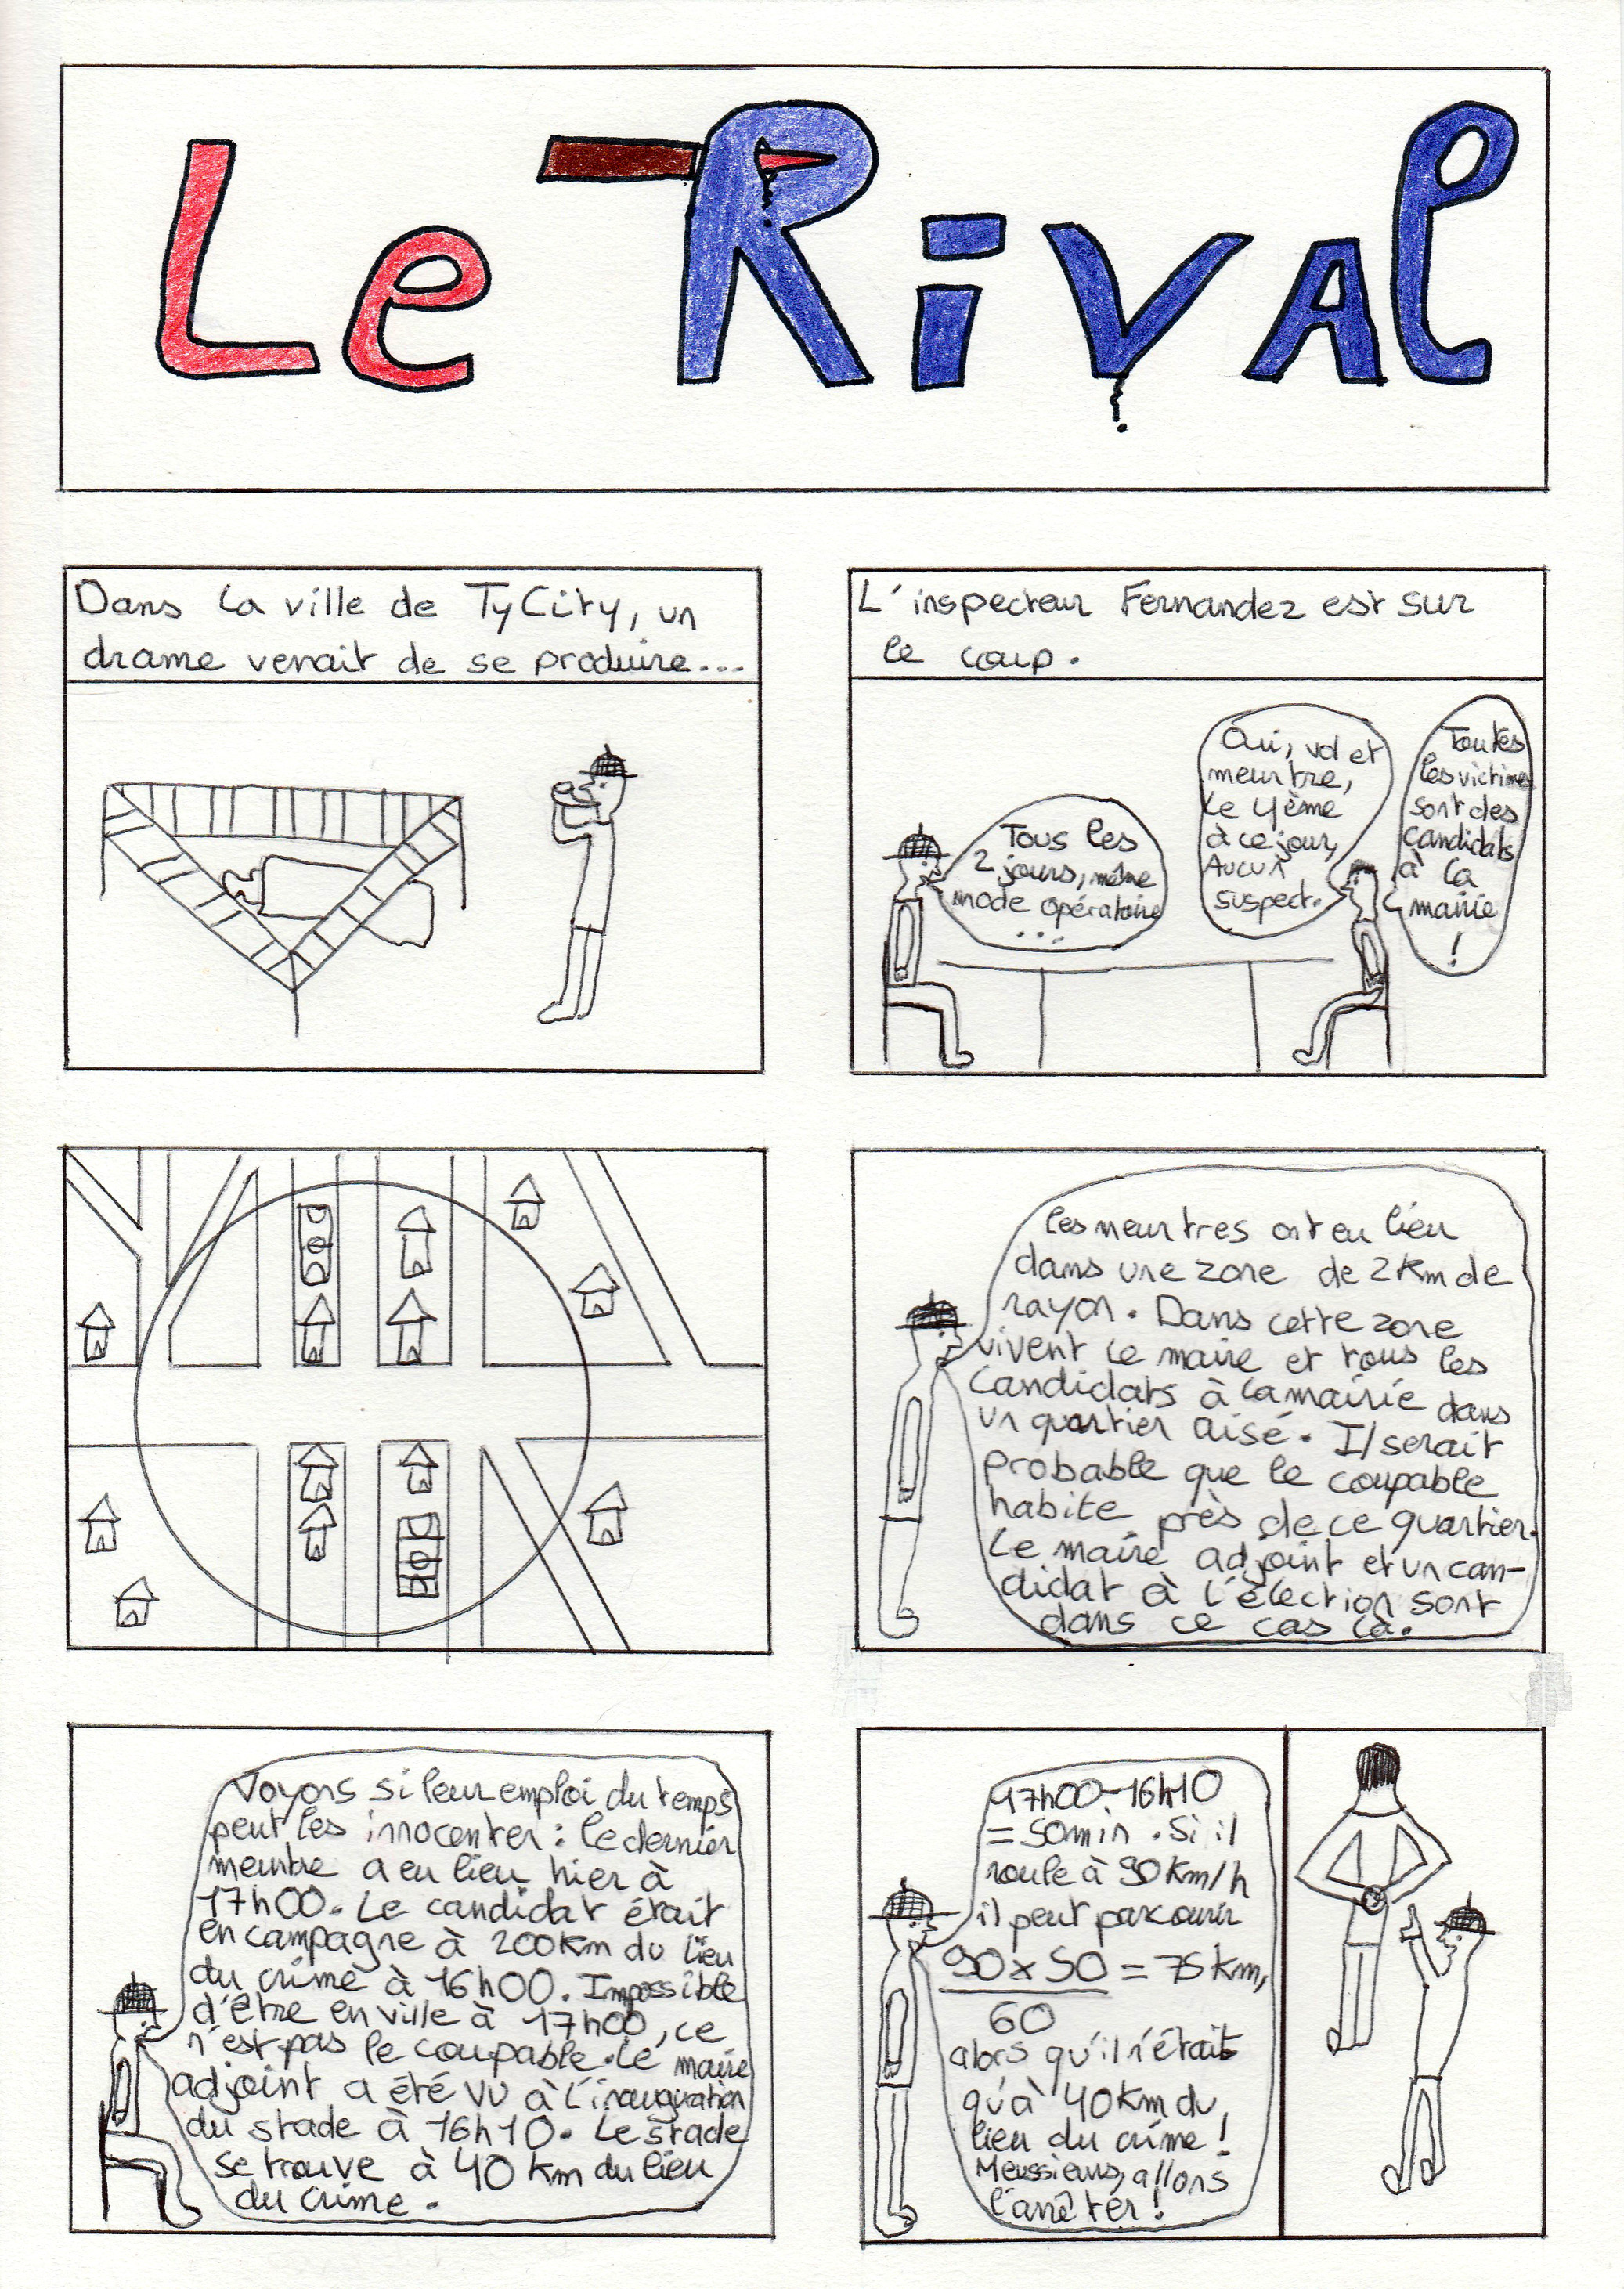 Le Rival
Dans la ville de TyCity, un
drame venait de se produire...
L'inspecteur Fernandez est sur
le coup.
Tous les
2 jours, même
mode opératoire
...
Oui, vol et
meurtre,
le 4ème
à ce jour,
Aucun
suspect.
Toutes
les victimes
sont des
candidats
à la
mairie
!
les meurtres ont eu lieu
dans une zone de 2Km de
rayon. Dans cette zone
vivent le maire et tous les
candidats à la mairie dans
un quartier aisé. Il serait
probable que le coupable
habite près de ce quartier.
Le maire adjoint et un can-
didat à l'élection sont
dans ce cas là.
Voyons si leur emploi du temps
peut les innocenter : le dernier
meurtre a eu lieu hier à
17h00. Le candidat était
en campagne à 200Km du lieu
du crime à 16h00. Impossible
d'être en ville à 17h00, ce
n'est pas le coupable. Le maire
adjoint a été vu à l'inauguration
du stade à 16h10. Le stade
se trouve à 40 Km du lieu
du crime.
17h00-16h10
= 50min. Si il
roule à 90Km/h
il peut parcourir
90 x 50 = 75 km,
60
alors qu'il n'était
qu'à 40Km du
lieu du crime !
Meussieurs, allons
l'arrêter !